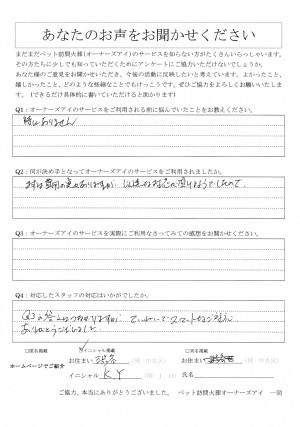 あなたのお声をお聞かせください
まだまだペット訪問火葬(オーナーズアイ)のサービスを知らない方がたくさんいらっしゃいます。
その方たちに少しでも知っていただくためにアンケートにご協力いただけないでしょうか。
あなた様のご意見をお聞かせいただき、今後の活動に反映したいと考えています。よかったこと、
嬉しかったこと、どのような些細なことでもけっこうです。ぜひご協力をよろしくお願いいたしま
す。(できるだけ具体的に書いていただけると助かります)
Q1:オーナーズアイのサービスをご利用される前に悩んでいたことをお教えください。
特にありません
Q2:何が決め手となってオーナーズアイのサービスをご利用されましたか。
Q3:オーナーズアイのサービスを実際にご利用なさってみての感想をお聞かせください。
Q4:対応したスタッフの対応はいかがでしたか。
Q3の答えに
ていねいでスマートな
ありがとうございました
□匿名掲載
イニシャル掲載
□実名掲載
お住まい 渋谷
(例:中央区)
お住まい
(例:中央区)
ホームページでご紹介
イニシャル K.Y
(例:J.H)
氏名
ご協力、本当にありがとうございました。 ペット訪問火葬オーナーズアイ 一同